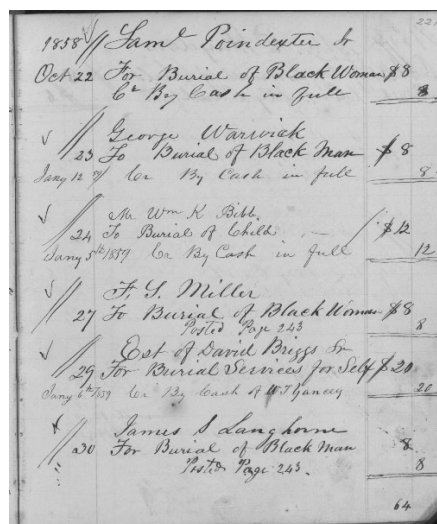 221
1858 // Saml Poindexter Sr
Oct 22 For Burial of Black Woman $8
Cr By Cash in full 8
George Warwick
23 To Burial of Black Man $8
Jany 12 Cr By Cash in full 8
Mr Wm K Bibb.
24 To Burial of Child $12
Jany 5th 1859 Cr By Cash in full 12
F. S. Miller
27 To Burial of Black Woman $8
Posted Page 243 8
Est of David Briggs Sr
29 For Burial Services for Self $20
Jany 6th 1859 Cr By Cash of W T Yancey 20
James S Langhorne
30 For Burial of Black Man 8
Posted Page 243. 8
64